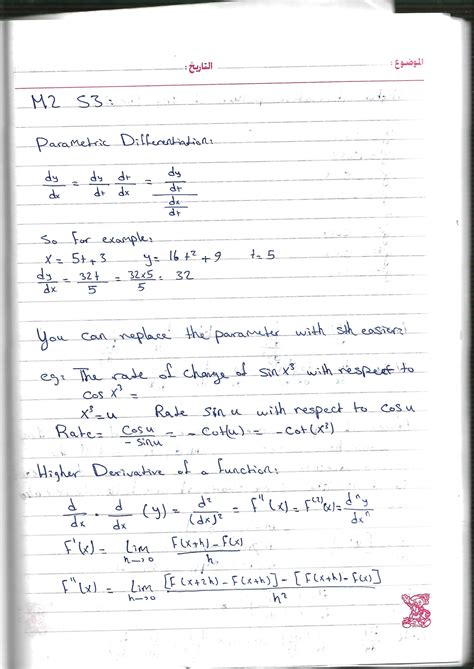 الموضوع : التاريخ :
M2 S3:
Parametric Differentiation:
dy/dx = dy/dt dt/dx = (dy/dt)/(dx/dt)
So For example:
x = 5t + 3 y = 16t² + 9 t = 5
dy/dx = 32t/5 = 32x5/5 = 32
You can replace the parameter with sth easier:
eg: The rate of change of sin x³ with respect to
cos x³ =
x³ = u Rate sin u with respect to cos u
Rate = cos u/-sin u = -cot(u) = -cot(x³)
· Higher Derivative of a function:
d/dx . d/dx (y) = d²/(dx)² = F''(x) = F⁽²⁾(x) = dⁿy/dxⁿ
F'(x) = Lim h→0 F(x+h) - F(x)/h
F''(x) = Lim h→0 [F(x+2h) - F(x+h)] - [F(x+h) - F(x)]/h²